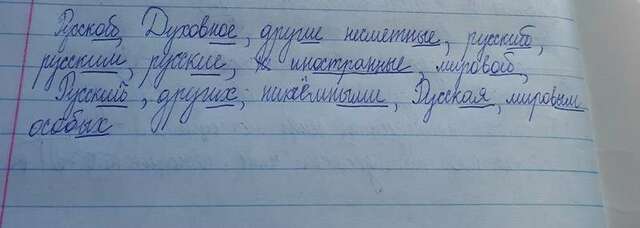 Русского, Духовное, другие несметные, русский,
русским, русские, иностранные, мировой,
Русский, других, никчёмными, Русская, мировым
особых